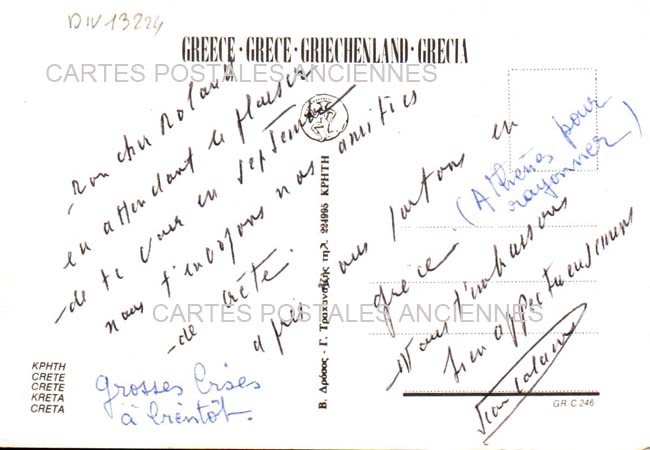 DIV13224
GREECE · GRECE · GRIECHENLAND · GRECIA
CARTES POSTALES ANCIENNES
mon cher Roland
en attendant le plaisir
de te voir en septembre
nous t'envoyons nos amitiés
de crête.
après nous partons en
grèce. (Athènes pour
rayonner)
Nous t'embrassons
bien affectueusement
grosses bises
à bientôt.
CARTES POSTALES ANCIENNES
Β. Δρόσος - Γ. Τραχανατζής τηλ. 224995 ΚΡΗΤΗ
ΚΡΗΤΗ
CRETE
CRETE
KRETA
CRETA
GR C 246